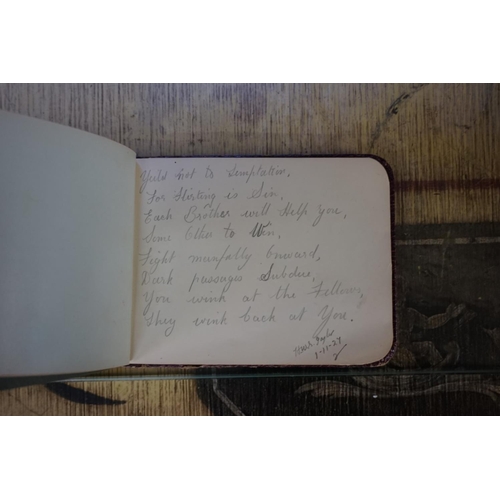 Yeild not to Temptation,
For Flirting is Sin,
Each Brother will Help You,
Some Other to Win,
Fight manfully Onward,
Dark passages Subdue,
You wink at the Fellows,
They wink back at You.
1-11-27